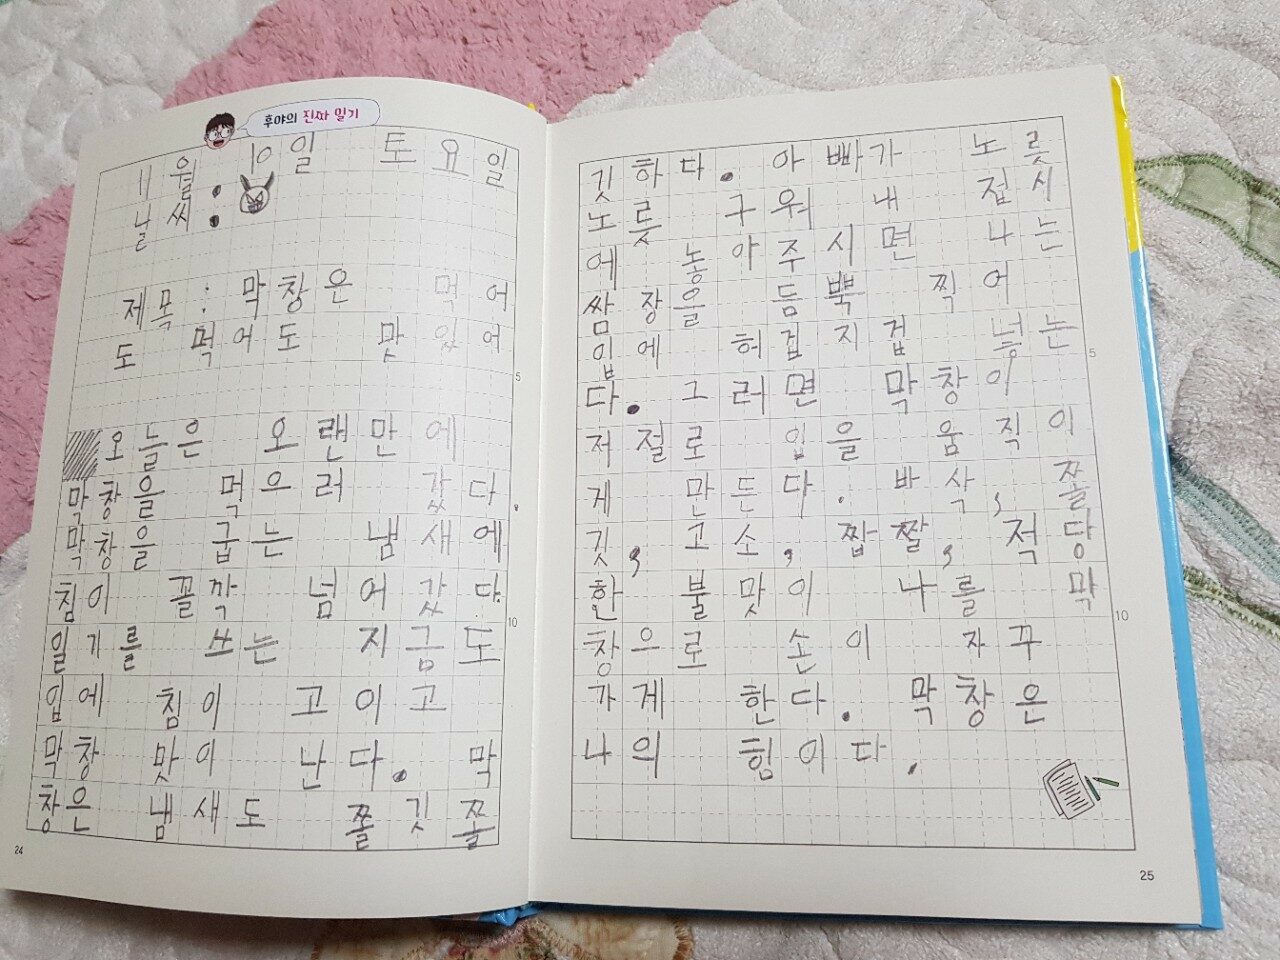 후야의 진짜 일기
11월. 10일 토요일
날씨:
제목: 막창은 먹어
도 먹어도 맛있어
오늘은 오랜만에
막창을 먹으러 갔다.
막창을 굽는 냄새에
침이 꼴깍 넘어갔다.
일기를 쓰는 지금도
입에 침이 고이고
막창 맛이 난다. 막
창은 냄새도 쫄깃쫄
24
깃하다. 아빠가 노릇
노릇 구워 내 접시
에 놓아주시면 나는
쌈장을 듬뿍 찍어
입에 허겁지겁 넣는
다. 그러면 막창이
저절로 입을 움직이
게 만든다. 바삭, 쫄
깃, 고소, 짭짤, 적당
한 불맛이 나를 막
창으로 손이 자꾸
가게 한다. 막창은
나의 힘이다.
25
5
10
5
10